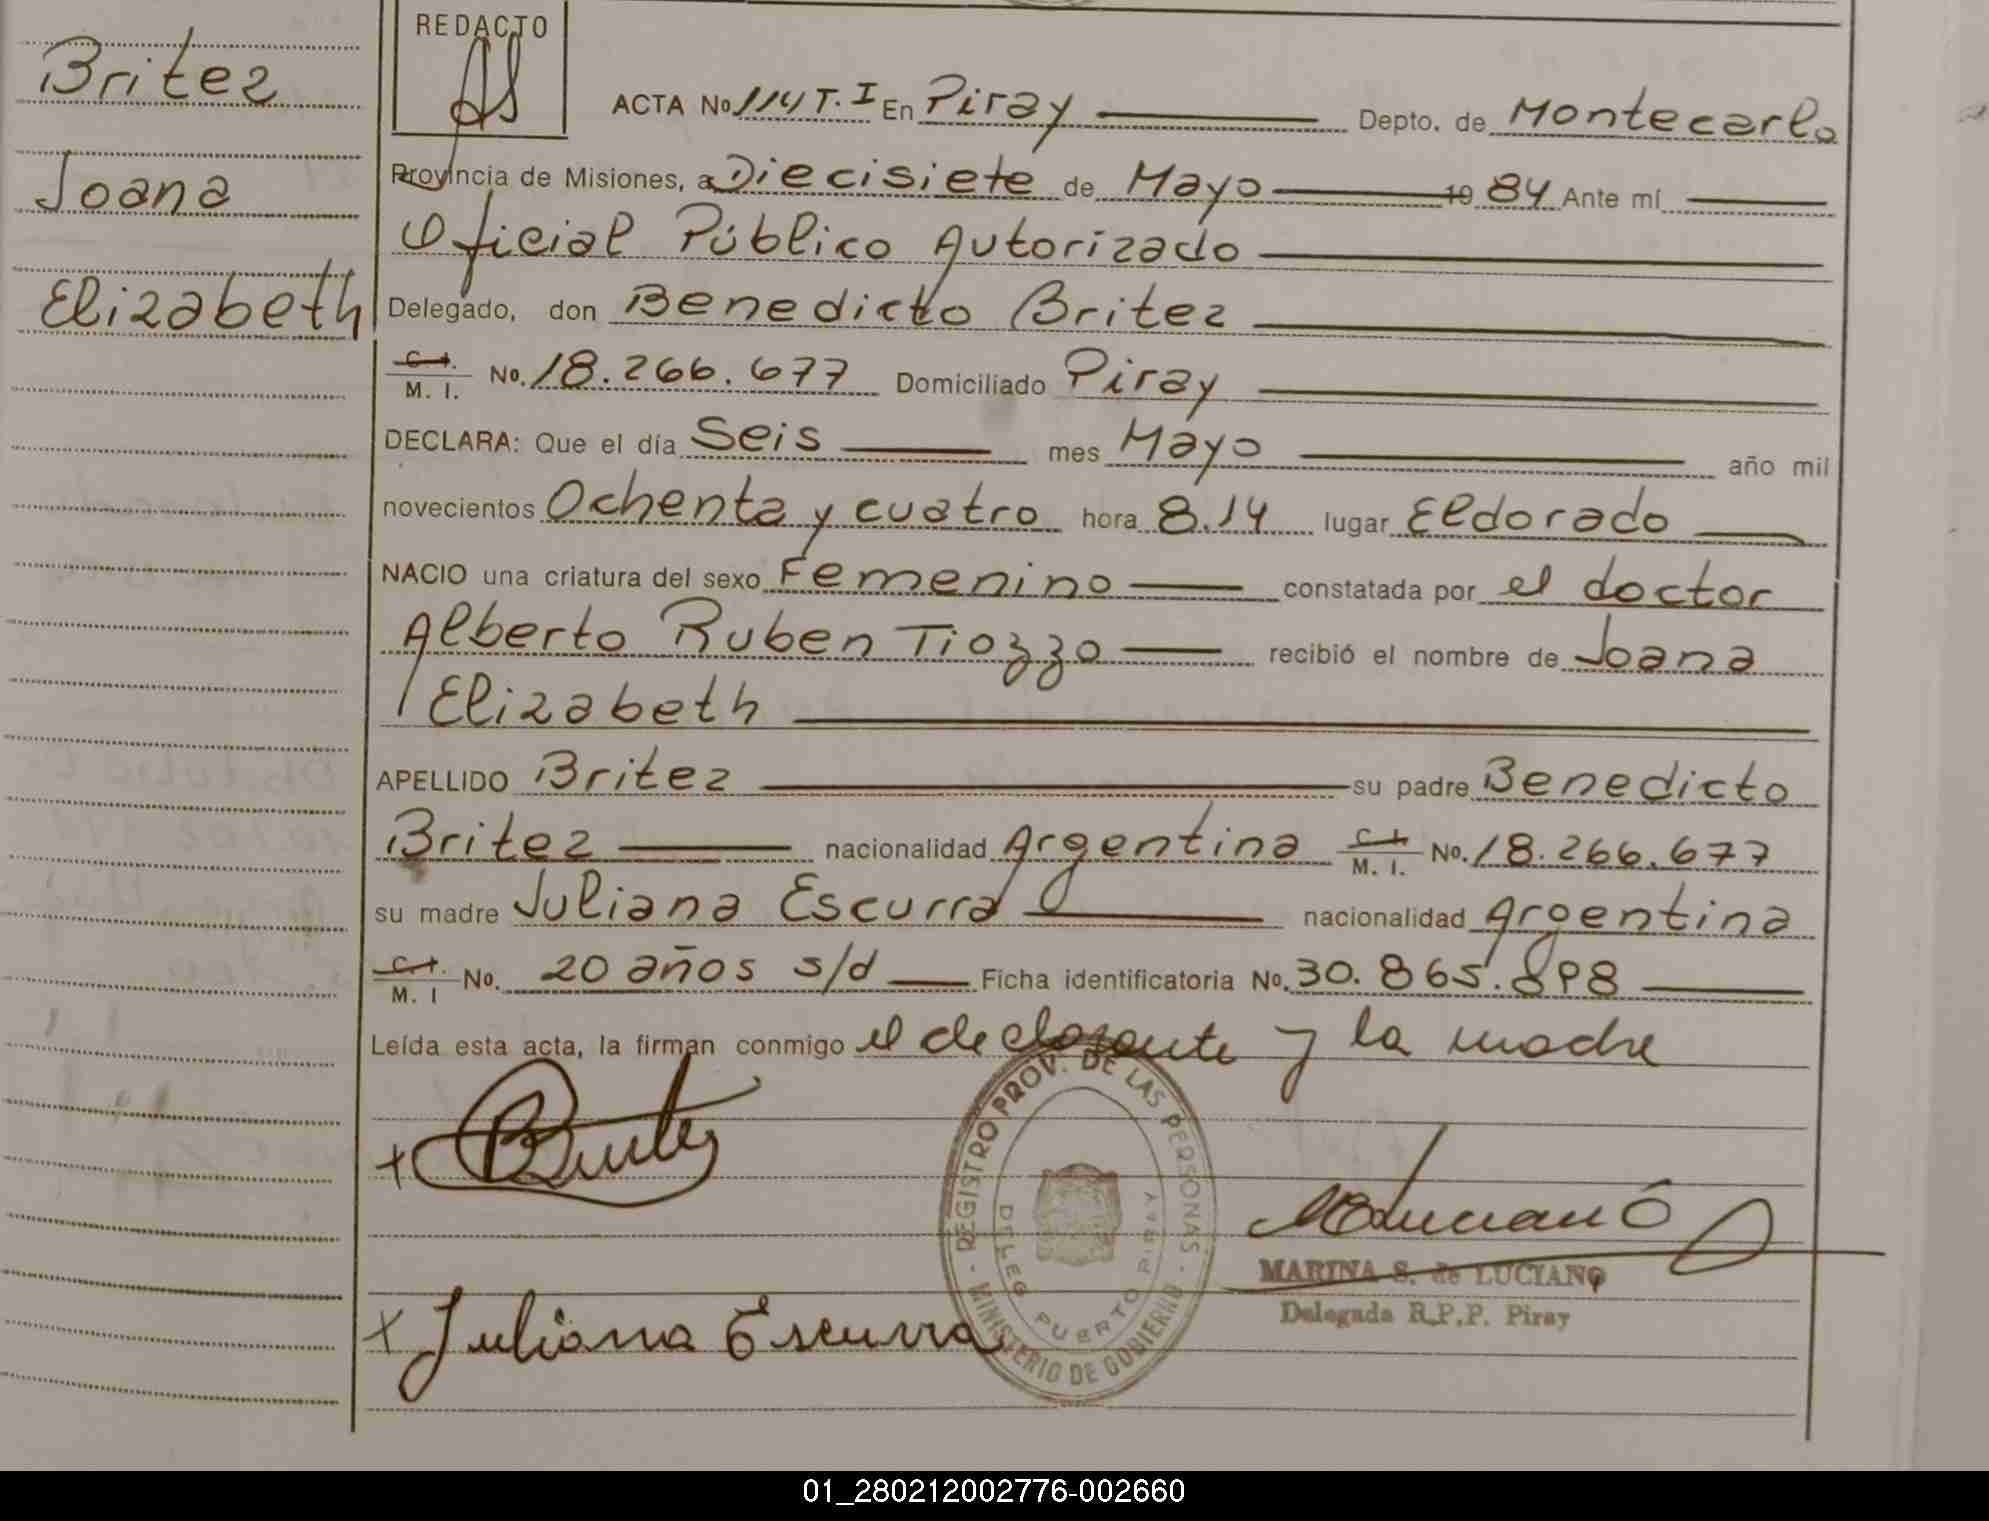 Britez
Joana
Elizabeth
REDACTO
ACTA No 114 T. I En Piray Depto. de Montecarlo
Provincia de Misiones, a Diecisiete de Mayo 19 84 Ante mí
Oficial Público Autorizado
Delegado, don Benedicto Britez
C. I.
M. I. No. 18.266.677 Domiciliado Piray
DECLARA: Que el día Seis mes Mayo año mil
novecientos Ochenta y cuatro hora 8.14 lugar Eldorado
NACIO una criatura del sexo Femenino constatada por el doctor
Alberto Ruben Tiozzo recibió el nombre de Joana
Elizabeth
APELLIDO Britez su padre Benedicto
Britez nacionalidad Argentina C. I. M. I. No. 18.266.677
su madre Juliana Escurra nacionalidad Argentina
C. I. M. I No. 20 años s/d Ficha identificatoria No. 30.865.898
Leída esta acta, la firman conmigo el declarante y la madre
x Britez
REGISTRO PROV. DE LAS PERSONAS
DELEG PUERTO PIRAY
MINISTERIO DE GOBIERNO
MARINA S. de LUCIANO
Delegada R.P.P. Piray
x Juliana Escurra
01_280212002776-002660